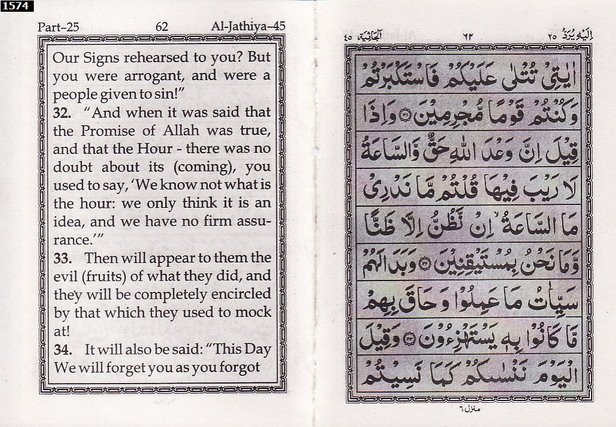 1574
Part–25 62 Al-Jathiya–45
Our Signs rehearsed to you? But
you were arrogant, and were a
people given to sin!”
32. “And when it was said that
the Promise of Allah was true,
and that the Hour - there was no
doubt about its (coming), you
used to say, ‘We know not what is
the hour: we only think it is an
idea, and we have no firm assu-
rance.’”
33. Then will appear to them the
evil (fruits) of what they did, and
they will be completely encircled
by that which they used to mock
at!
34. It will also be said: “This Day
We will forget you as you forgot
اِلَيْهِ يُرَدُّ ٢٥ ٦٢ الْجَاثِيَة ٤٥
اٰيٰتِىْ تُتْلٰى عَلَيْكُمْ فَاسْتَكْبَرْتُمْ
وَكُنْتُمْ قَوْمًا مُّجْرِمِيْنَ ۝ وَاِذَا
قِيْلَ اِنَّ وَعْدَ اللّٰهِ حَقٌّ وَّالسَّاعَةُ
لَا رَيْبَ فِيْهَا قُلْتُمْ مَّا نَدْرِىْ
مَا السَّاعَةُ ۙ اِنْ نَّظُنُّ اِلَّا ظَنًّا
وَّمَا نَحْنُ بِمُسْتَيْقِنِيْنَ ۝ وَبَدَا لَهُمْ
سَيِّاٰتُ مَا عَمِلُوْا وَحَاقَ بِهِمْ
مَّا كَانُوْا بِهٖ يَسْتَهْزِءُوْنَ ۝ وَقِيْلَ
الْيَوْمَ نَنْسٰىكُمْ كَمَا نَسِيْتُمْ
منزل ٦